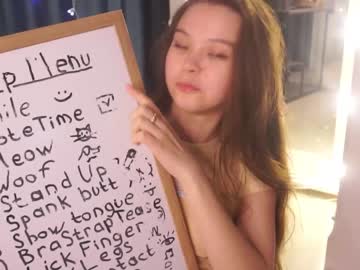 p Menu
ile
oteTime
Meow
Woof
Stand Up
Spank butt
Show tongue
BraStrapTease
ick Finger
Legs
ntact